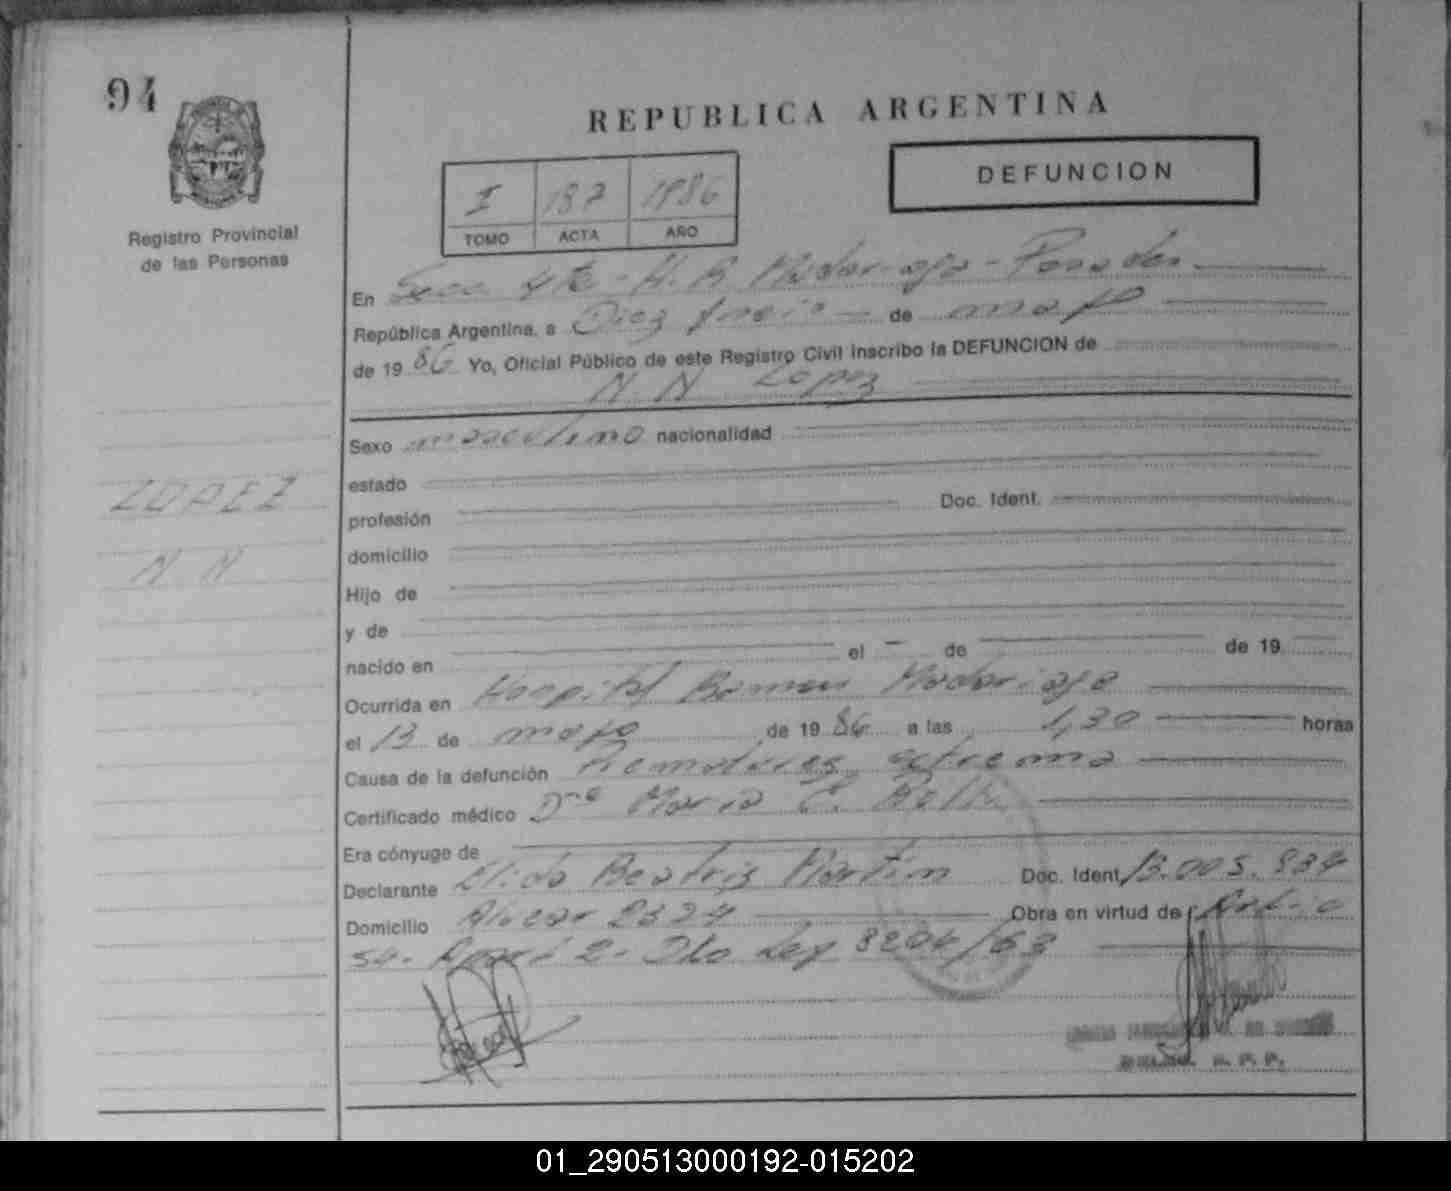 94
REPUBLICA ARGENTINA
DEFUNCION
I 187 1986
TOMO ACTA AÑO
Registro Provincial
de las Personas
En Secc 4ta - H. R. Madariaga - Posadas
República Argentina, a Diez de mayo
de 1986 Yo, Oficial Público de este Registro Civil inscribo la DEFUNCION de
N. N Lopez
Sexo masculino nacionalidad
estado
LOPEZ
N N
profesión Doc. Ident.
domicilio
Hijo de
y de
nacido en el — de de 19
Ocurrida en Hospital Ramon Madariaga
el 13 de mayo de 1986 a las 1,30 horas
Causa de la defunción Prematurez extrema
Certificado médico Dra Maria E.
Era cónyuge de
Declarante Elida Beatriz Martin Doc. Ident. 13.003.834
Domicilio 2324 Obra en virtud de Artic
54. Apart 2. Dto Ley 8204/63
01_290513000192-015202